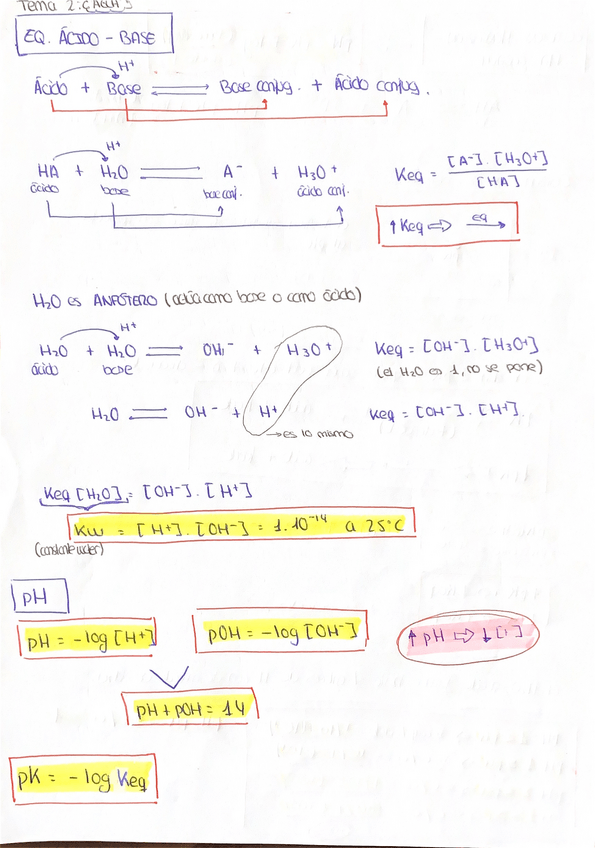 Tema 2:
EQ. ÁCIDO - BASE
H+
Ácido + Base ⇌ Base conjug. + Ácido conjug.
H+
HA + H2O ⇌ A- + H3O+
ácido base base conj. ácido conj.
Keq = [A-] · [H3O+] / [HA]
↑ Keq ⇨ eq →
H2O es ANFÓTERO (actúa como base o como ácido)
H+
H2O + H2O ⇌ OH- + H3O+
ácido base
Keq = [OH-] · [H3O+]
(el H2O es 1, no se pone)
H2O ⇌ OH- + H+
Keq = [OH-] · [H+]
→ es lo mismo
Keq [H2O] = [OH-] · [H+]
Kw = [H+] · [OH-] = 1·10-14 a 25°C
(constante water)
pH
pH = -log [H+]
pOH = -log [OH-]
↑ pH ⇨ ↓ [ ]
pH + pOH = 14
pK = - log Keq